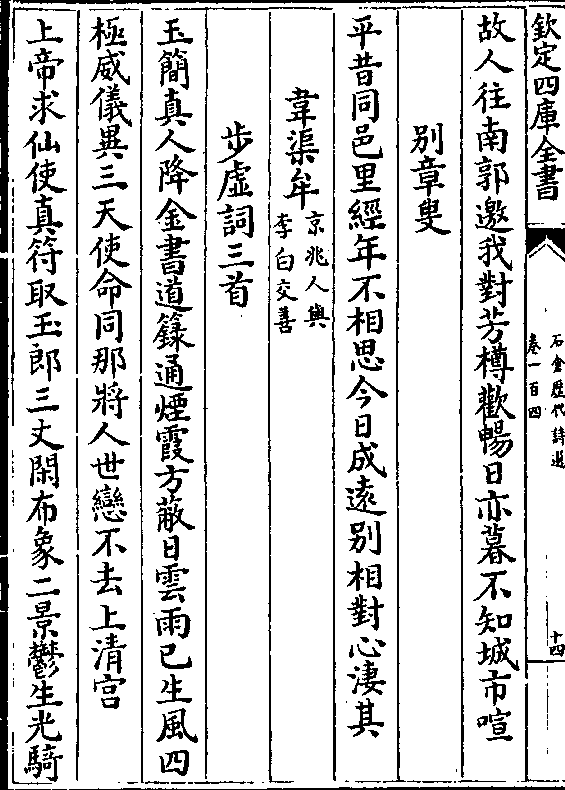 欽定四庫全書
石倉歷代詩選
卷一百四
十四
故人往南郭邀我對芳樽歡暢日亦暮不知城市喧
別章叟
平昔同邑里經年不相思今日成遠別相對心淒其
韋渠牟
京兆人與
李白交善
步虛詞三首
玉簡真人降金書道籙通煙霞方蔽日雲雨已生風四
極威儀異三天使命同那將人世戀不去上清宮
上帝求仙使真符取玉郎三丈閑布象二景鬱生光騎